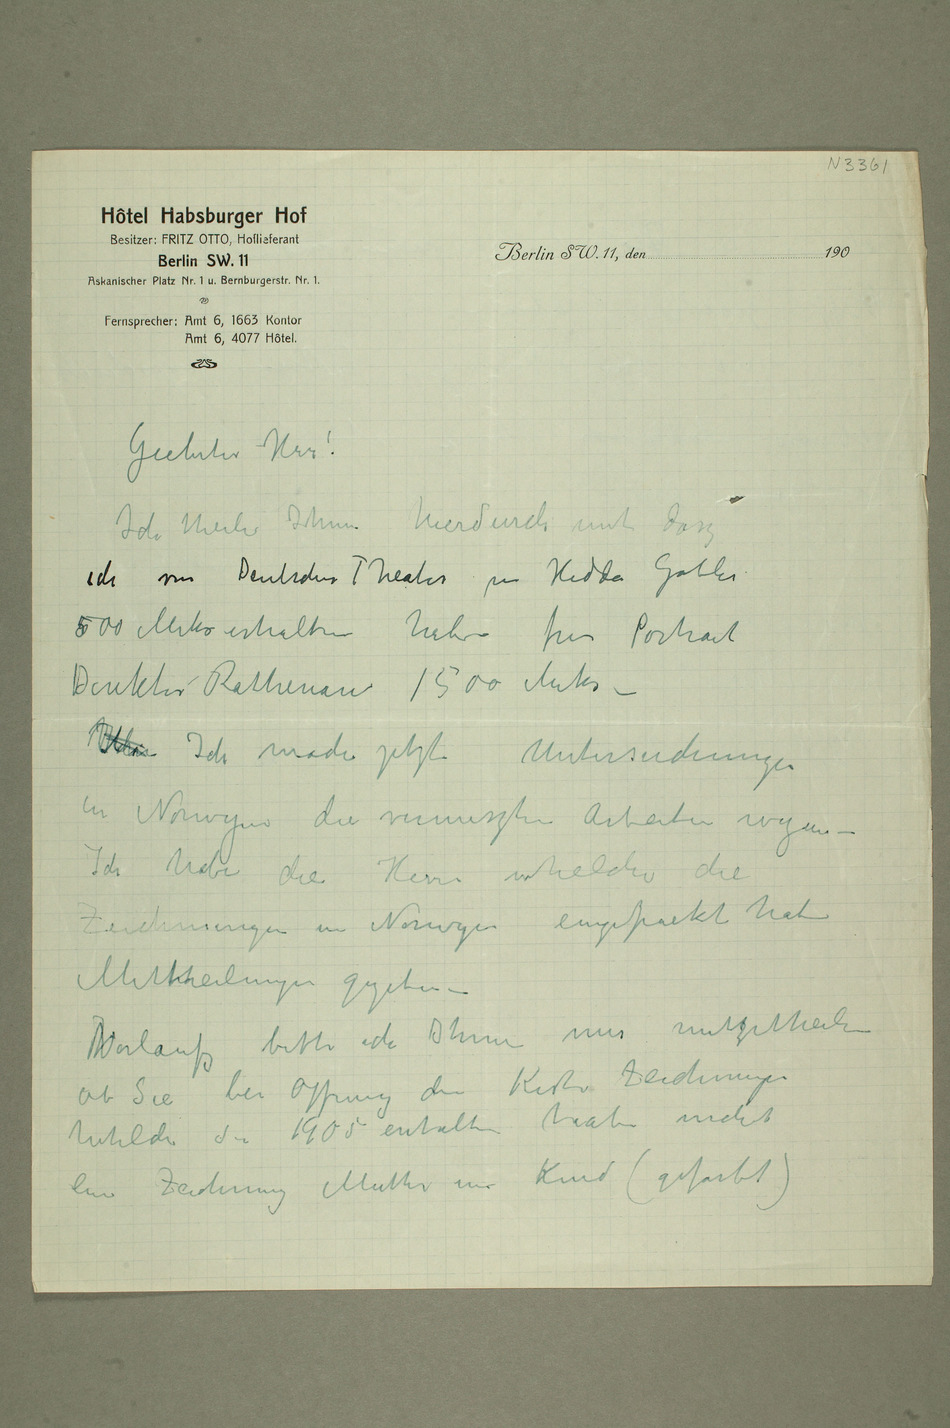 N3361
Hôtel Habsburger Hof
Besitzer: FRITZ OTTO, Hoflieferant
Berlin SW. 11
Askanischer Platz Nr. 1 u. Bernburgerstr. Nr. 1.
Fernsprecher: Amt 6, 1663 Kontor
Amt 6, 4077 Hôtel.
Berlin SW. 11, den 190
Geehrter Herr!
Ich theile Ihnen hierdurch mit dasz
ich von Deutsches Theater für Hedda Gabler
500 Mks erhalten habe für Portrait
Direktor Rathenau 1500 Mks –
Ich mache jetzt Untersuchungen
in Norwegen die vermiszten Arbeiten wegen –
Ich habe die Herrn welche die
Zeichnungen in Norwegen eingepackt hat
Mittheilungen gegeben –
Vorlaufg bitte ich Ihnen mir mitzutheilen
ob Sie bei Öffnung der Kiste Zeichnungen
welche Sie 1905 erhalten haben nicht
eine Zeichnung Mutter und Kind (gefarbt)